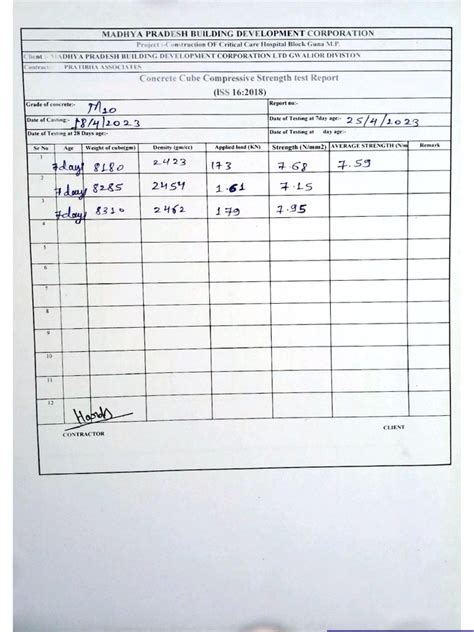 MADHYA PRADESH BUILDING DEVELOPMENT CORPORATION
Project :-Construction OF Critical Care Hospital Block Guna M.P.
Client :- MADHYA PRADESH BUILDING DEVELOPMENT CORPORATION LTD GWALIOR DIVISTON
PRATIBHA ASSOCIATES
Concrete Cube Compressive Strength test Report
(ISS 16:2018)
Grade of concrete:- M10 Report no:-
Date of Casting:- 18/4/2023 Date of Testing at 7day age:- 25/4/2023
Date of Testing at 28 Days age:- Date of Testing at day age:-
Sr No Age Weight of cube(gm) Density (gm/cc) Applied load (KN) Strength (N/mm2) AVERAGE STRENGTH (N/m Remark
1 7day 8180 2423 173 7.68 7.59
2 7day 8285 2454 1.61 7.15
3 7day 8310 2462 179 7.95
4
5
6
7
8
9
10
11
12
CONTRACTOR CLIENT